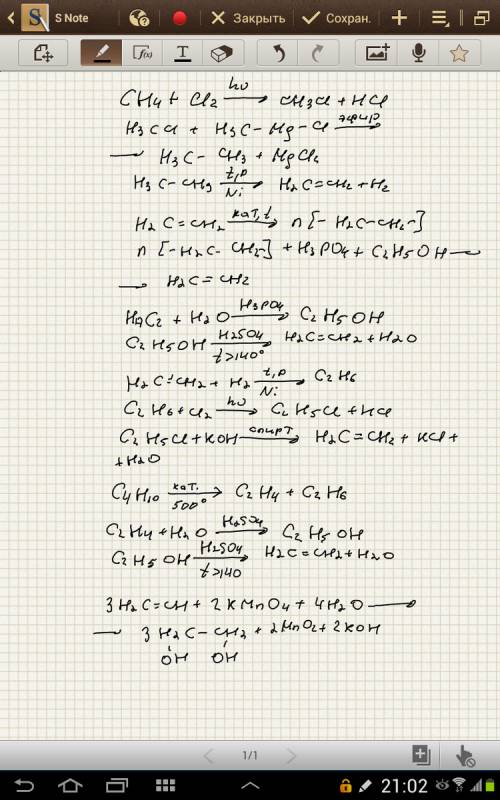 S Note
Закрыть
Сохран.
CH4 + Cl2 hν ⟶ CH3Cl + HCl
H3CCl + H3C – Mg – Cl эфир ⟶
⟶ H3C – CH3 + MgCl2
H3C – CH3 t,p ⟶ Ni H2C=CH2 + H2
H2C=CH2 кат,t ⟶ n[– H2C–CH2–]
n[–H2C– CH2–] + H3PO4 + C2H5OH ⟶
⟶ H2C=CH2
H4C2 + H2O H3PO4 ⟶ C2H5OH
C2H5OH H2SO4 ⟶ t>140° H2C=CH2 + H2O
H2C=CH2 + H2 t,p ⟶ Ni C2H6
C2H6 + Cl2 hν ⟶ C2H5Cl + HCl
C2H5Cl + KOH спирт ⟶ H2C=CH2 + KCl +
+ H2O
C4H10 кат. ⟶ 500° C2H4 + C2H6
C2H4 + H2O H2SO4 ⟶ C2H5OH
C2H5OH H2SO4 ⟶ t>140 H2C=CH2 + H2O
3H2C=CH + 2KMnO4 + 4H2O ⟶
⟶ 3H2C–CH2 + 2MnO2 + 2KOH
OH OH
1/1
21:02